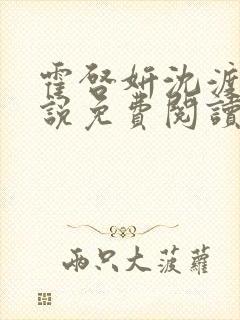 霍啓妍沈渡
說免費閱讀
兩只大菠蘿